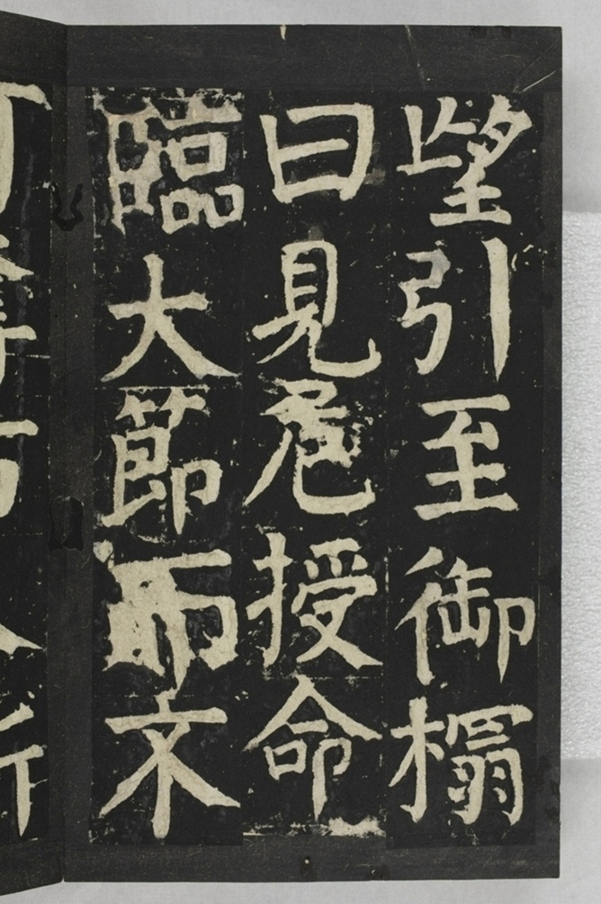 望引至御榻
曰見危授命
臨大節而不